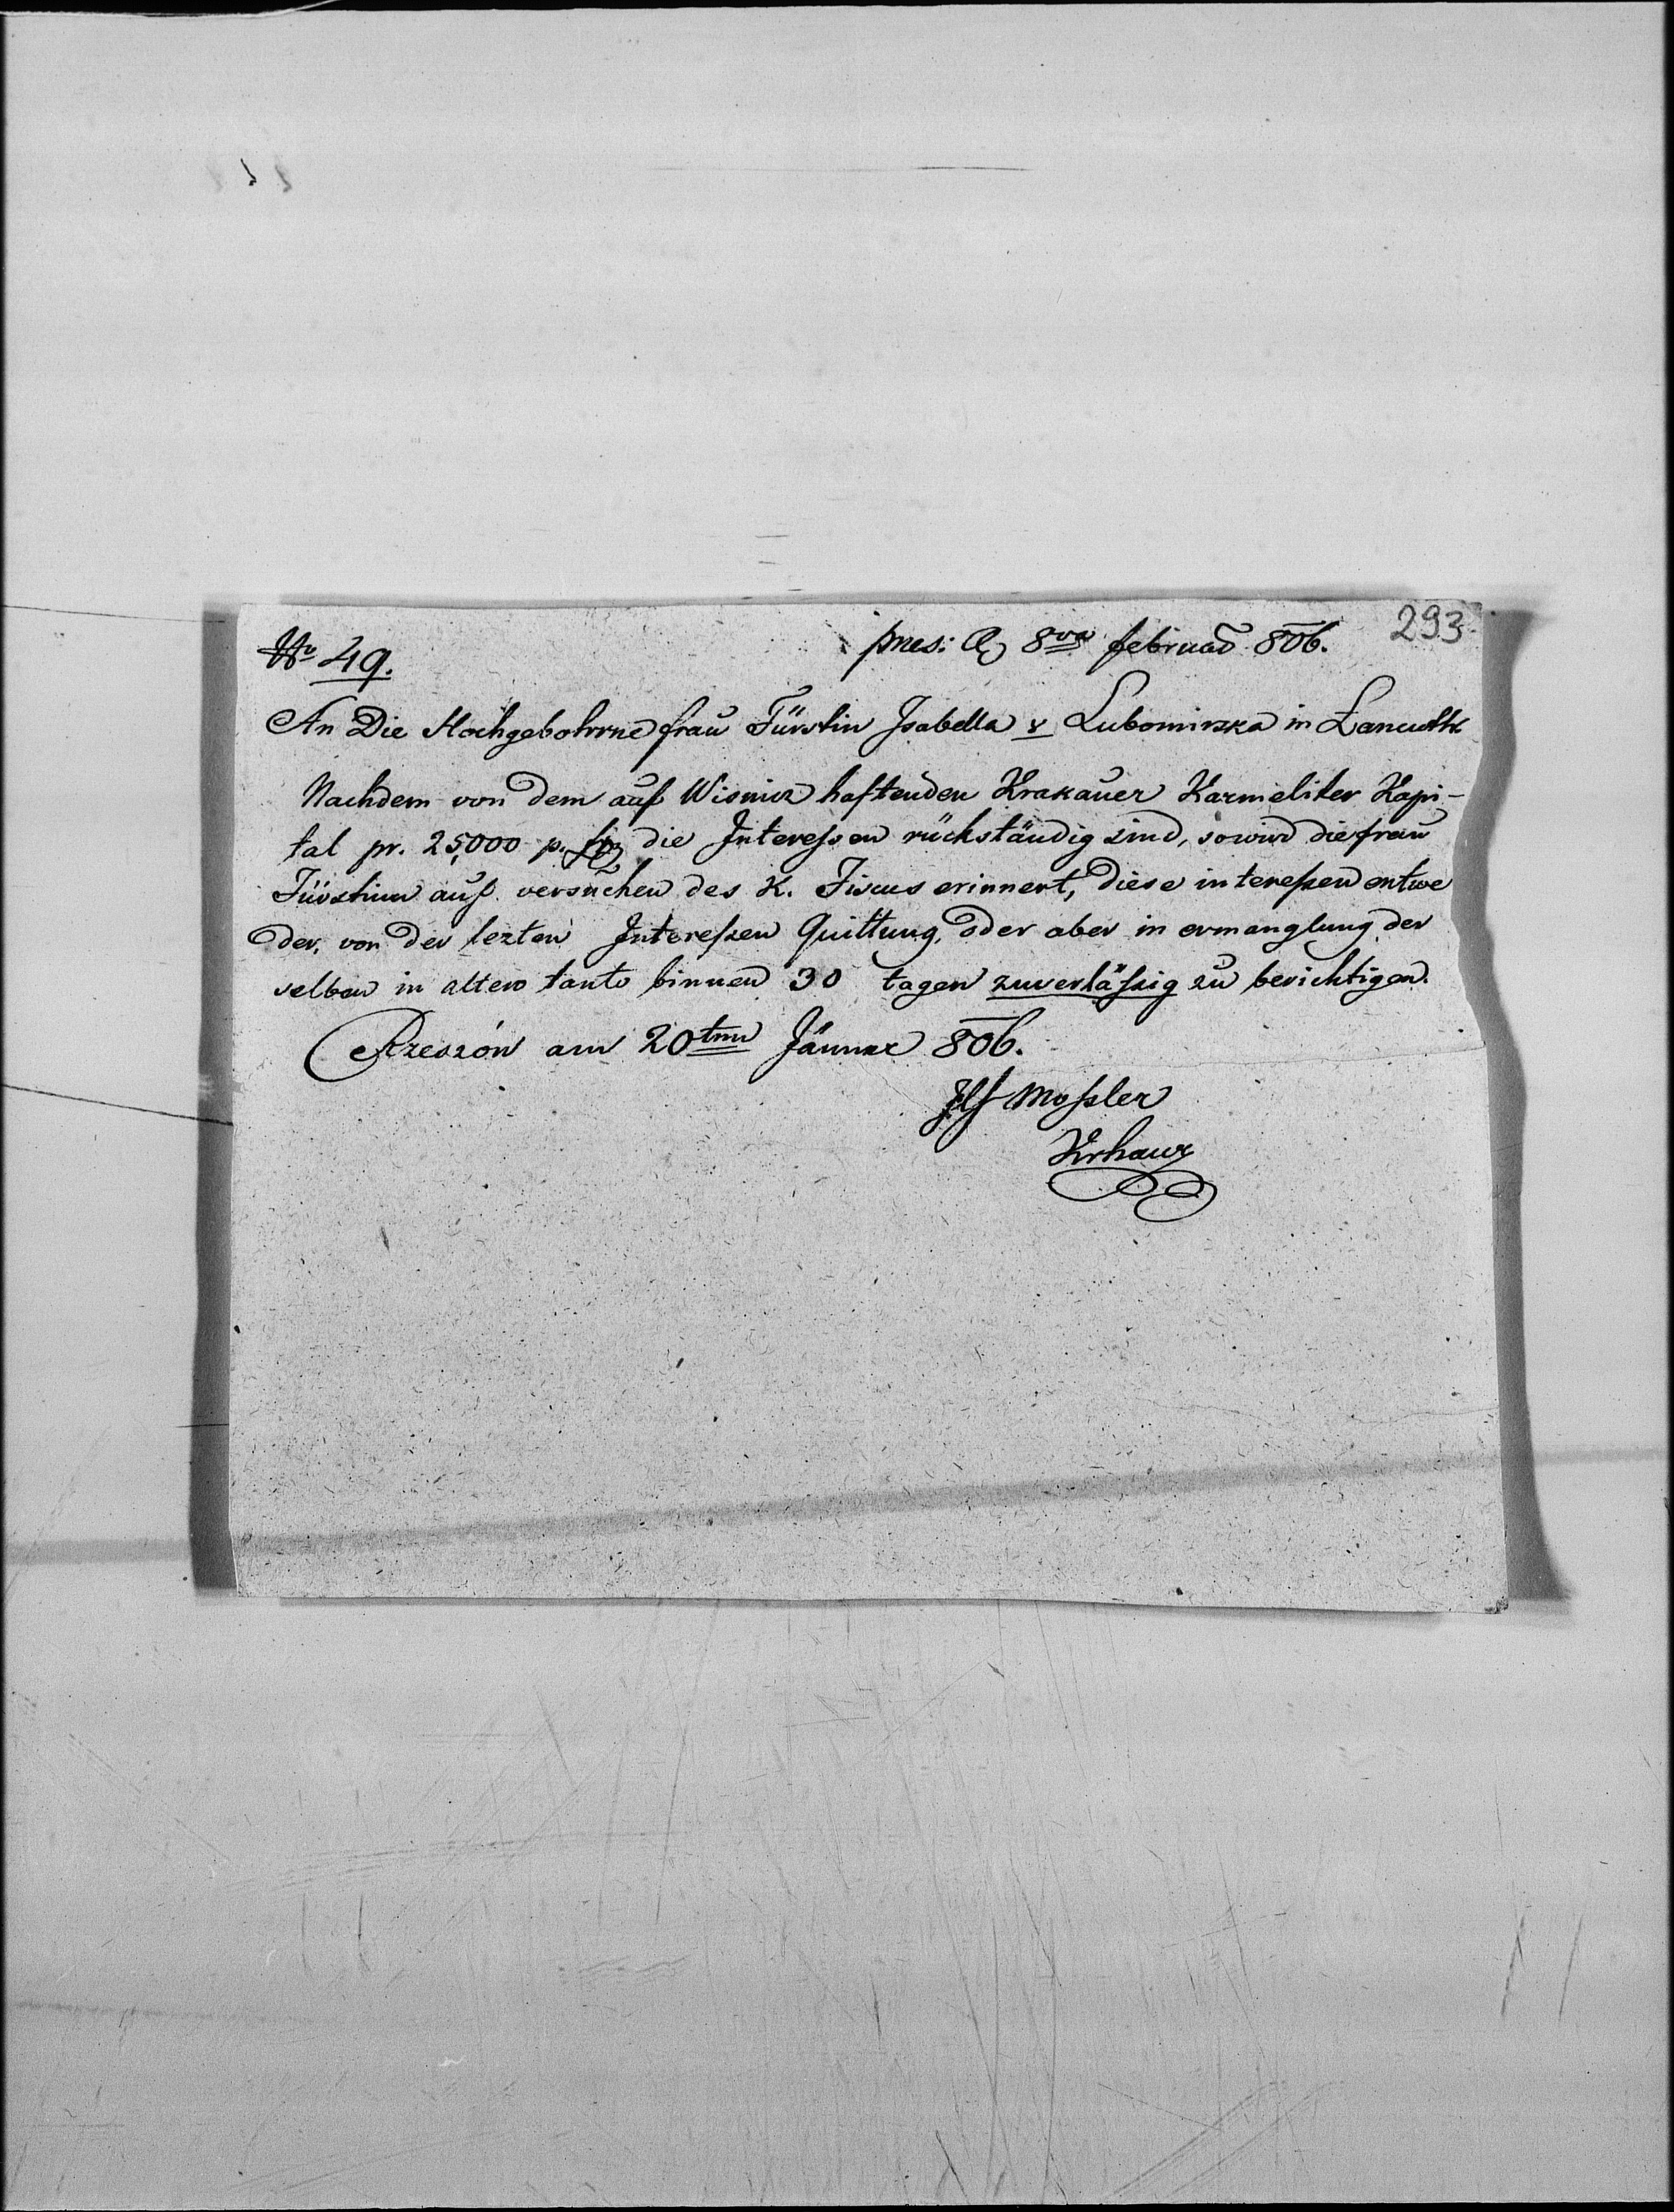 293
No 49.
præs: 8va februar 806.
An Die Hochgebohrne frau Fürstin Isabella v Lubomirska in Lancuth
Nachdem von dem auf Wisnicz haftenden Krakauer Karmeliter Kapi-
tal pr. 25,000 p. die Interessen rückständig sind, so wird die frau
Fürstinn auf versuchen des K. Fiscus erinnert, diese interessen entwe
der, von der lezten Interessen Quittung, oder aber in ermanglung der
selben in altero tanto binnen 30 tagen zuverlässig zu berichtigen.
Rzeszów am 20ten Jänner 806.
Mossler